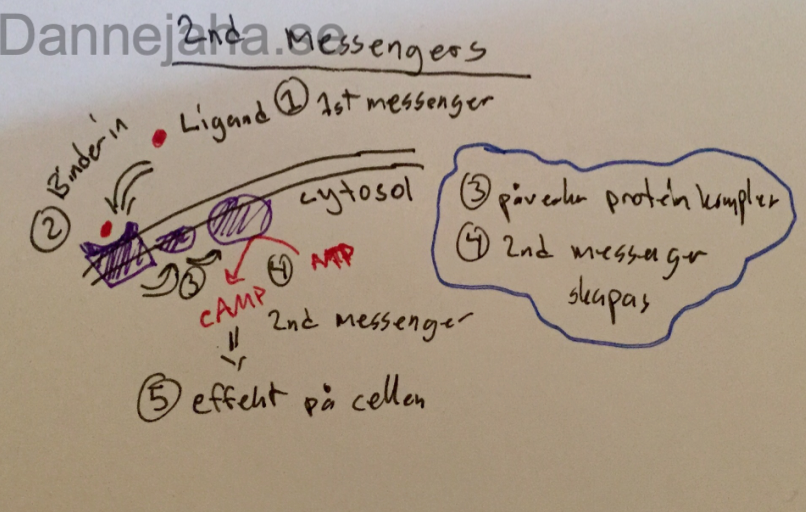 Dannejaha.se
2nd messengers
Ligand ① 1st messenger
② Binder in
cytosol
③
④
ATP
cAMP
2nd messenger
⑤ effekt på cellen
③ påverkar proteinkomplex
④ 2nd messager
skapas